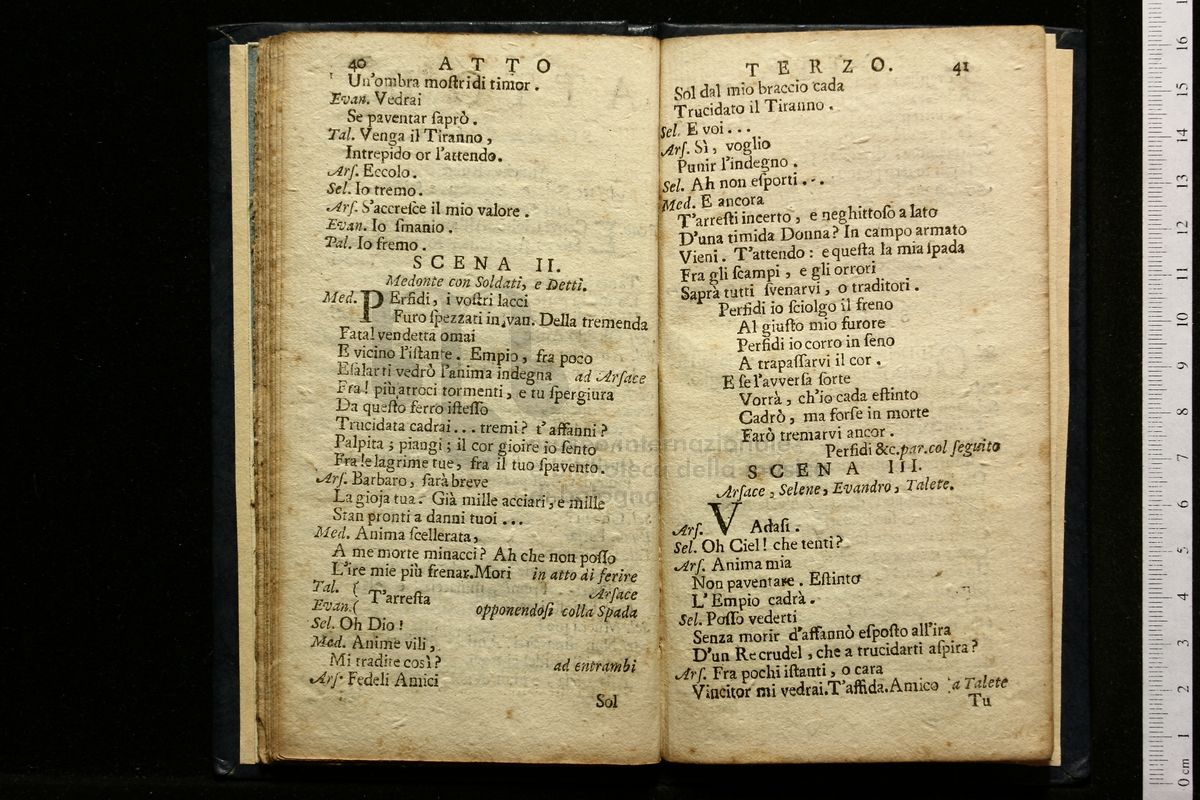 40 ATTO
Un'ombra moſtri di timor.
Evan. Vedrai
Se paventar ſaprò.
Tal. Venga il Tiranno,
Intrepido or l'attendo.
Arſ. Eccolo.
Sel. Io tremo.
Arſ. S'accreſce il mio valore.
Evan. Io ſmanio.
Tal. Io fremo.
SCENA II.
Medonte con Soldati, e Detti.
Med. PErfidi, i voſtri lacci
Furo ſpezzati in van. Della tremenda
Fatal vendetta omai
E vicino l'iſtante. Empio, fra poco
Eſalarti vedrò l'anima indegna ad Arſace
Fra! più atroci tormenti, e tu ſpergiura
Da queſto ferro iſteſſo
Trucidata cadrai... tremi? t'affanni?
Palpita; piangi; il cor gioire io ſento
Fra le lagrime tue, fra il tuo ſpavento.
Arſ. Barbaro, ſarà breve
La gioja tua. Già mille acciari, e mille
Stan pronti a danni tuoi...
Med. Anima ſcellerata,
A me morte minacci? Ah che non poſſo
L'ire mie più frenar. Mori in atto di ferire
Arſace
Tal. (
Evan. ( T'arreſta opponendoſi colla Spada
Sel. Oh Dio!
Med. Anime vili,
Mi tradite così? ad entrambi
Arſ. Fedeli Amici
Sol
TERZO. 41
Sol dal mio braccio cada
Trucidato il Tiranno.
Sel. E voi...
Arſ. Sì, voglio
Punir l'indegno.
Sel. Ah non eſporti...
Med. E ancora
T'arreſti incerto, e neghittoſo a lato
D'una timida Donna? In campo armato
Vieni. T'attendo: e queſta la mia ſpada
Fra gli ſcampi, e gli orrori
Saprà tutti ſvenarvi, o traditori.
Perfidi io ſciolgo il freno
Al giuſto mio furore
Perfidi io corro in ſeno
A trapaſſarvi il cor.
E ſe l'avverſa ſorte
Vorrà, ch'io cada eſtinto
Cadrò, ma forſe in morte
Farò tremarvi ancor.
Perfidi &c. par. col ſeguito
SCENA III.
Arſace, Selene, Evandro, Talete.
Arſ. VAdaſi.
Sel. Oh Ciel! che tenti?
Arſ. Anima mia
Non paventare. Eſtinto
L'Empio cadrà.
Sel. Poſſo vederti
Senza morir d'affannò eſpoſto all'ira
D'un Re crudel, che a trucidarti aſpira?
Arſ. Fra pochi iſtanti, o cara
Vincitor mi vedrai. T'affida. Amico a Talete
Tu